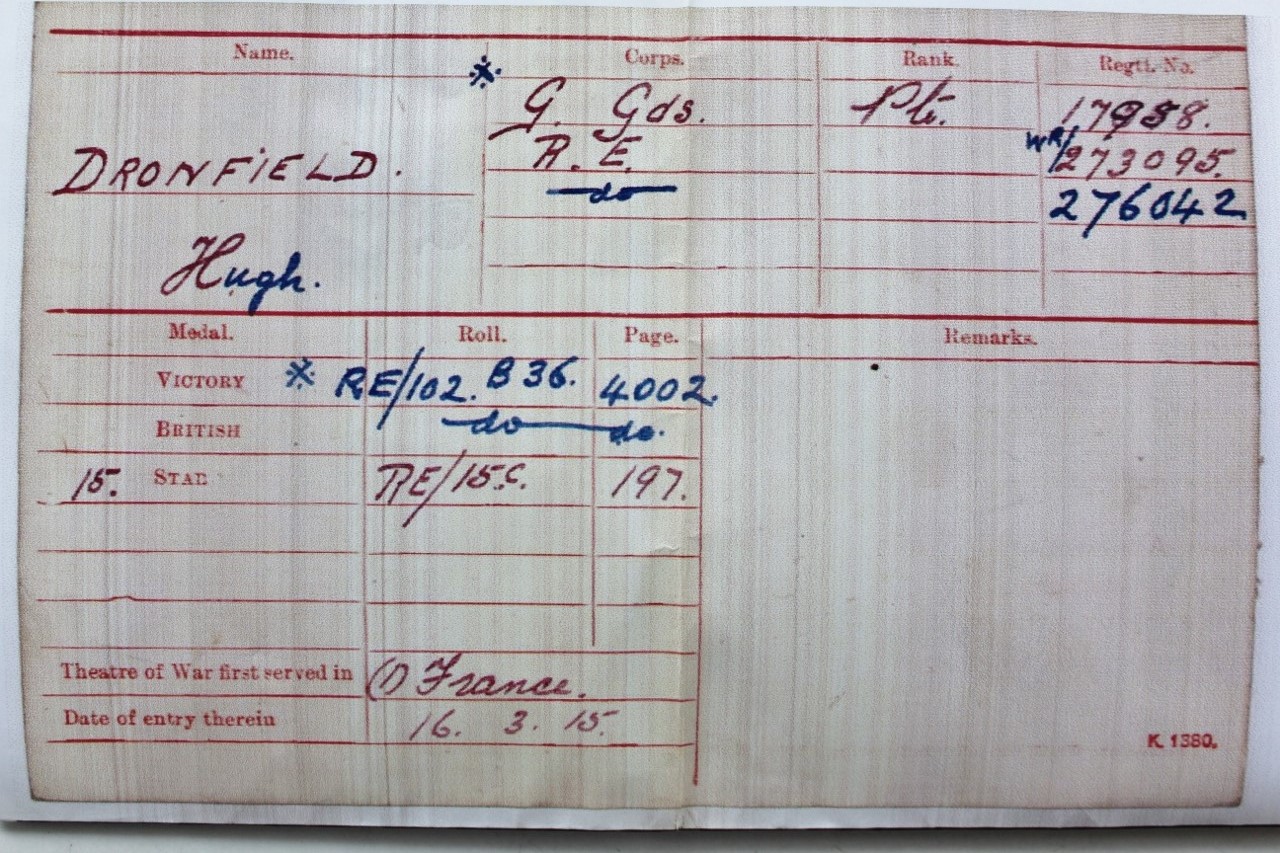 Name. Corps. Rank. Regtl. No.
* G. Gds. Pte. 17958.
DRONFIELD. R.E. WR/273095.
do 276042
Hugh.
Medal. Roll. Page. Remarks.
VICTORY * RE/102. B 36. 4002.
BRITISH do do.
15. STAR RE/15.C. 197.
Theatre of War first served in (1) France.
Date of entry therein 16. 3. 15.
K. 1380.